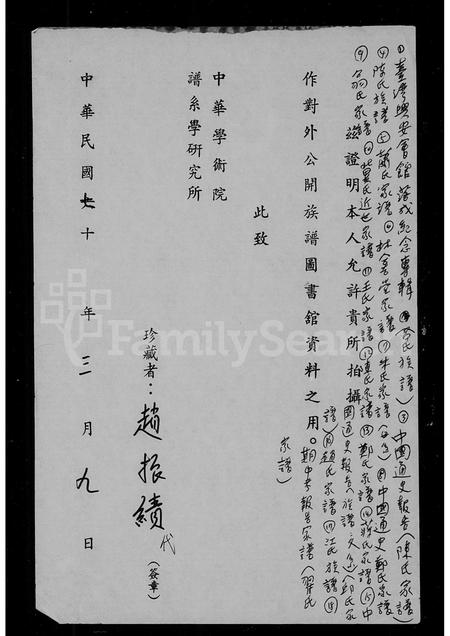 ①臺灣興安會館落成紀念專輯 ②蔡氏族譜 ③中國通史報告(陳氏家譜)
④陳氏族譜 ⑤蕭氏家譜 ⑥林善堂家譜 ⑦朱氏家譜 ⑧中國通史鄭氏家譜
⑨翁氏家譜 ⑩莫氏近世家譜 ⑪王氏家譜 ⑫連氏家譜 ⑬鄭氏家譜 ⑭蔣氏家譜 ⑮中
國通史報告(族譜) (邱氏家
譜) ⑯趙氏家譜 ⑰江氏族譜 ⑱
期中考報告家譜(翟氏
家譜)
茲證明本人允許貴所拍攝
作對外公開族譜圖書館資料之用。
此致
中華學術院
譜系學研究所
珍藏者：趙振績代(簽章)
中華民國七十年三月九日
FamilySearch